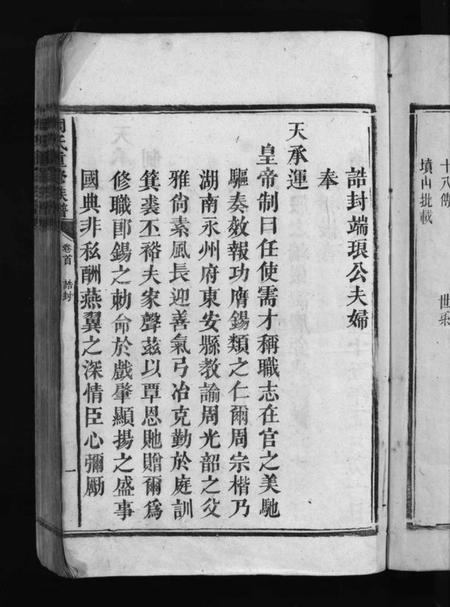 誥封端琅公夫婦
奉
天承運
皇帝制曰任使需才稱職志在官之美馳
驅奏效報功膺錫類之仁爾周宗楷乃
湖南永州府東安縣教諭周光韶之父
雅尚素風長迎善氣弓冶克勤於庭訓
箕裘丕裕夫家聲茲以覃恩貤贈爾爲
修職郎錫之勅命於戲肇顯揚之盛事
國典非私酬燕翼之深情臣心彌勵
卷首 誥封
一
十八傳
墳山批載